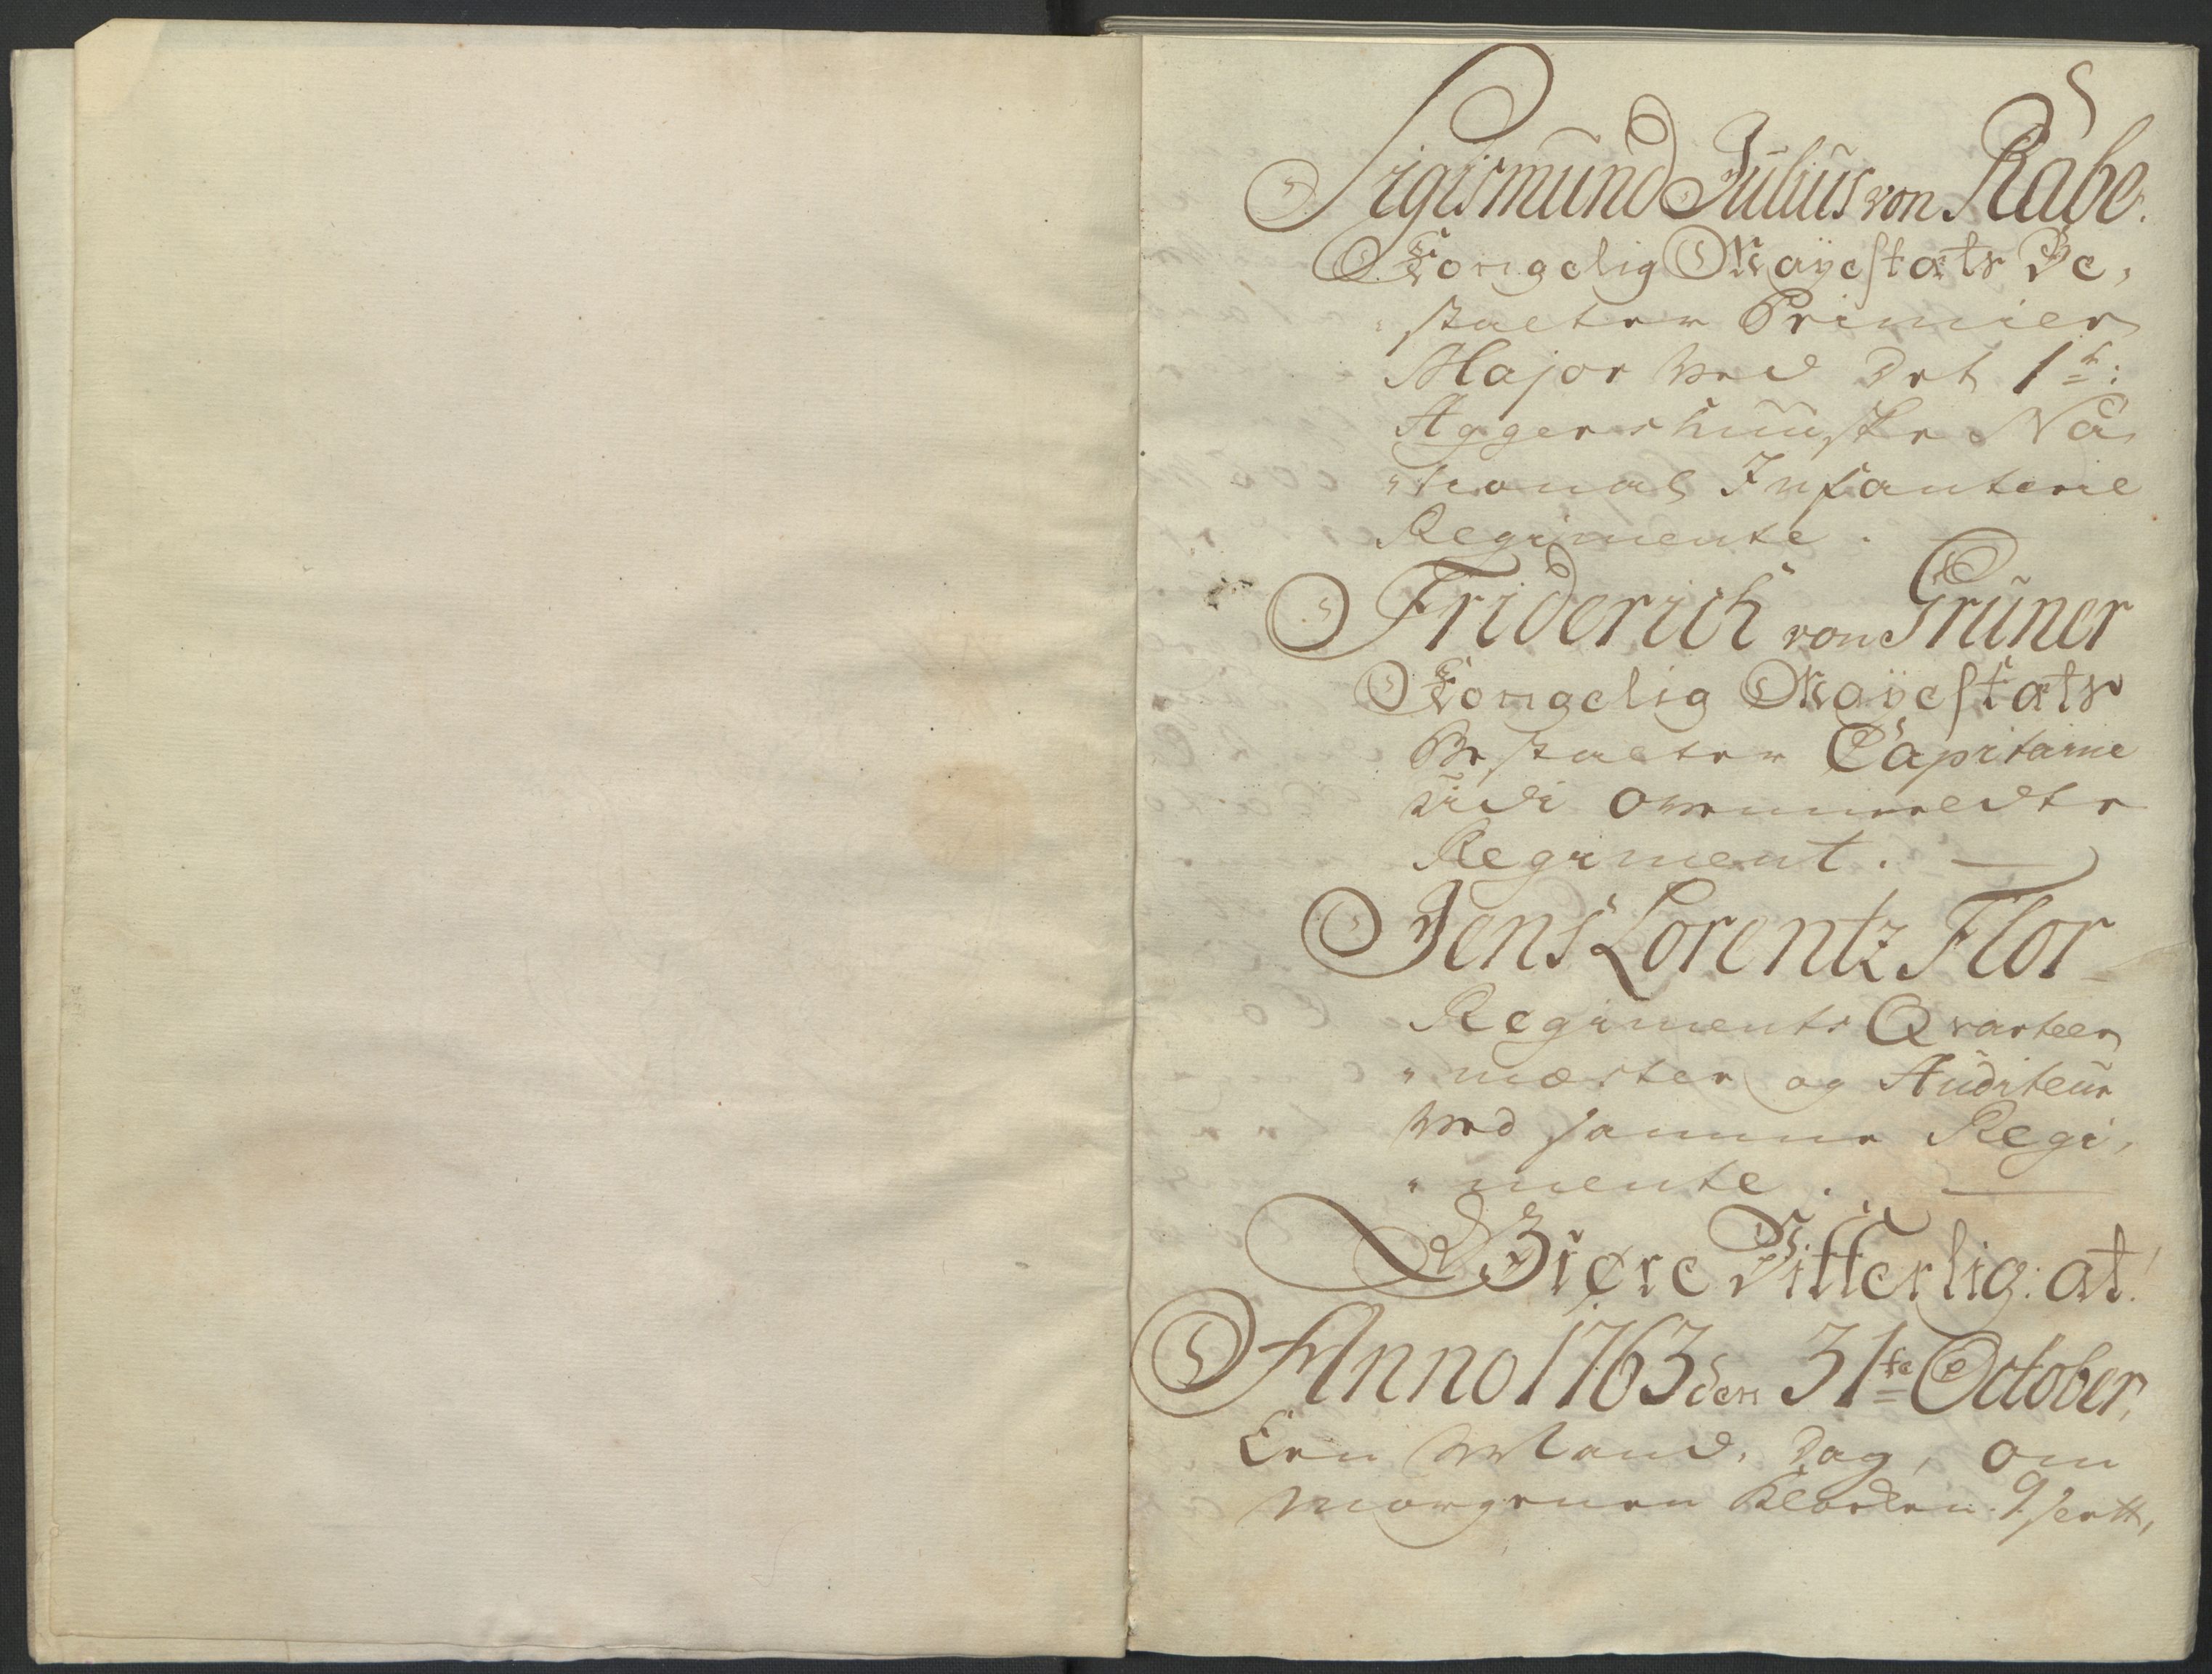 Sigismund Julius von Rabe.
Kongelig Mayestæts Be„
„stalter Premier
Major ved det 1te:
Aggershuuske Na„
„tional Infanterie
Regimente.
Friderich von Grüner
Kongelig Mayestæts
Bestalter Capitaine
udi ovenmeldte
Regiment.
Jens Lorentz Flor
Regiments Qvarteer
„mæster og Auditeur
ved samme Regi„
„mente.
Giøre Vitterlig: at
Anno 1763 den 31te October,
Om morgenen Klocken 9 Slett,